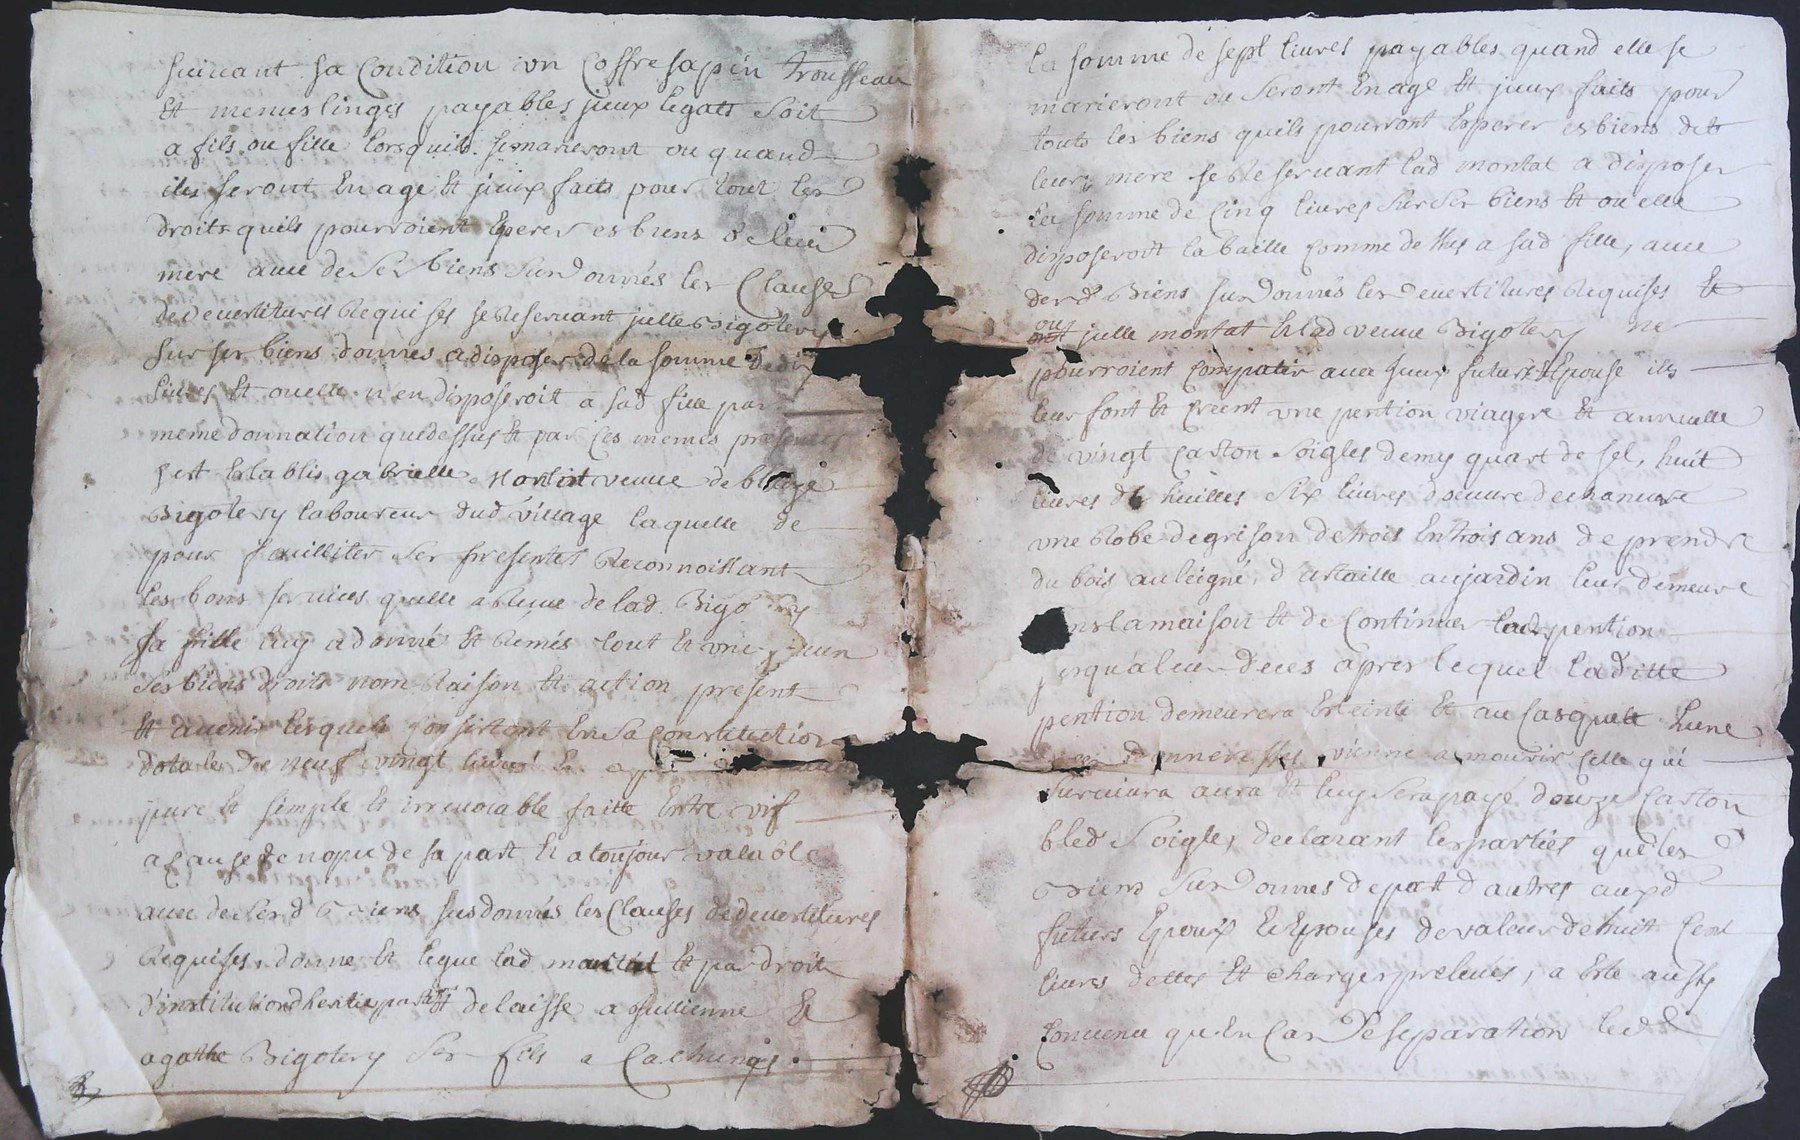 suivant sa Condition un Coffre sapin trousseau
Et menus linges payables jceux legats soit
a fils ou fille lorsquils se marieront ou quand
ils seront En age Et jceux faits pour tout les
droits quils pourroient Esperer es biens de leur
mere avec de ses biens sus donnés les Clauses
de devertitures Requises se Reservant jcelle Bigotery
sur ses biens donnes a disposer de la somme de dix
livres Et ou elle n'en disposeroit a sad fille par
meme donnation que dessus Et par Ces memes presentes
s'est Etablis gabrielle montat veuve de blaize
Bigotery laboureur dud village laquelle de
pour faciliter Ses presentes Reconnoissant
les bons services quelle a Reçue de lad. Bigotery
sa fille luy a donné Et Remés tout Et un
ses biens droits nom Raison Et action present
Et avenir lesquels Consistont En sa Constitution
dotale de neuf vingt livres Et
pure Et simple Et irrevocable faitte Entre vif
a Cause de nopce de sa part Et a toujour valable
avec de ses d Biens sus donnés les Clauses de devertitures
Requises, donne Et legue lad montat Et par droit
d'institution d'heritie particult delaisse a jullienne Et
agathe Bigotery Ses fils a Ca
la somme de sept livres payables quand elle se
marieront ou seront En age Et jceux faits pour
touts les biens quils pourront Esperer es biens de
leur mere se Reservant lad montat a disposer
la somme de Cinq livres sur ses biens Et ou elle
disposeroitt la baille Comme dethes a sad fille, avec
des d Biens sus donnés les devertitures Requises Et
ou jcelle montat Et lad veuve Bigotery ne
pourroient Compatir avec jceux futurs Epouse ils
leur font Et Creent une pention viagere Et annuelle
de vingt Carton soigles demy quart de sel, huit
livres de huilles six livres d'oeuvre de chanvre
une Robe de grison de trois En trois ans de prendre
du bois au leigné, d'artaille au jardin leur demeure
dans la maison Et de Continuer lade pention
jusqu'a leur deces apres lequel laditte
pention demeurera Eteinte Et au Cas quelle L'une
donneresses vienne a mourir Celle qui
survivra aura Et luy sera payé douze Carton
bled Soigle, declarant les parties que les
Biens Sus donnes de part d'autres aux d
futurs Epoux Et Epouses de valeur de huit Cent
livres dettes Et charges prelevés, a Ete aussy
Convenu qu'En Cas de separation led